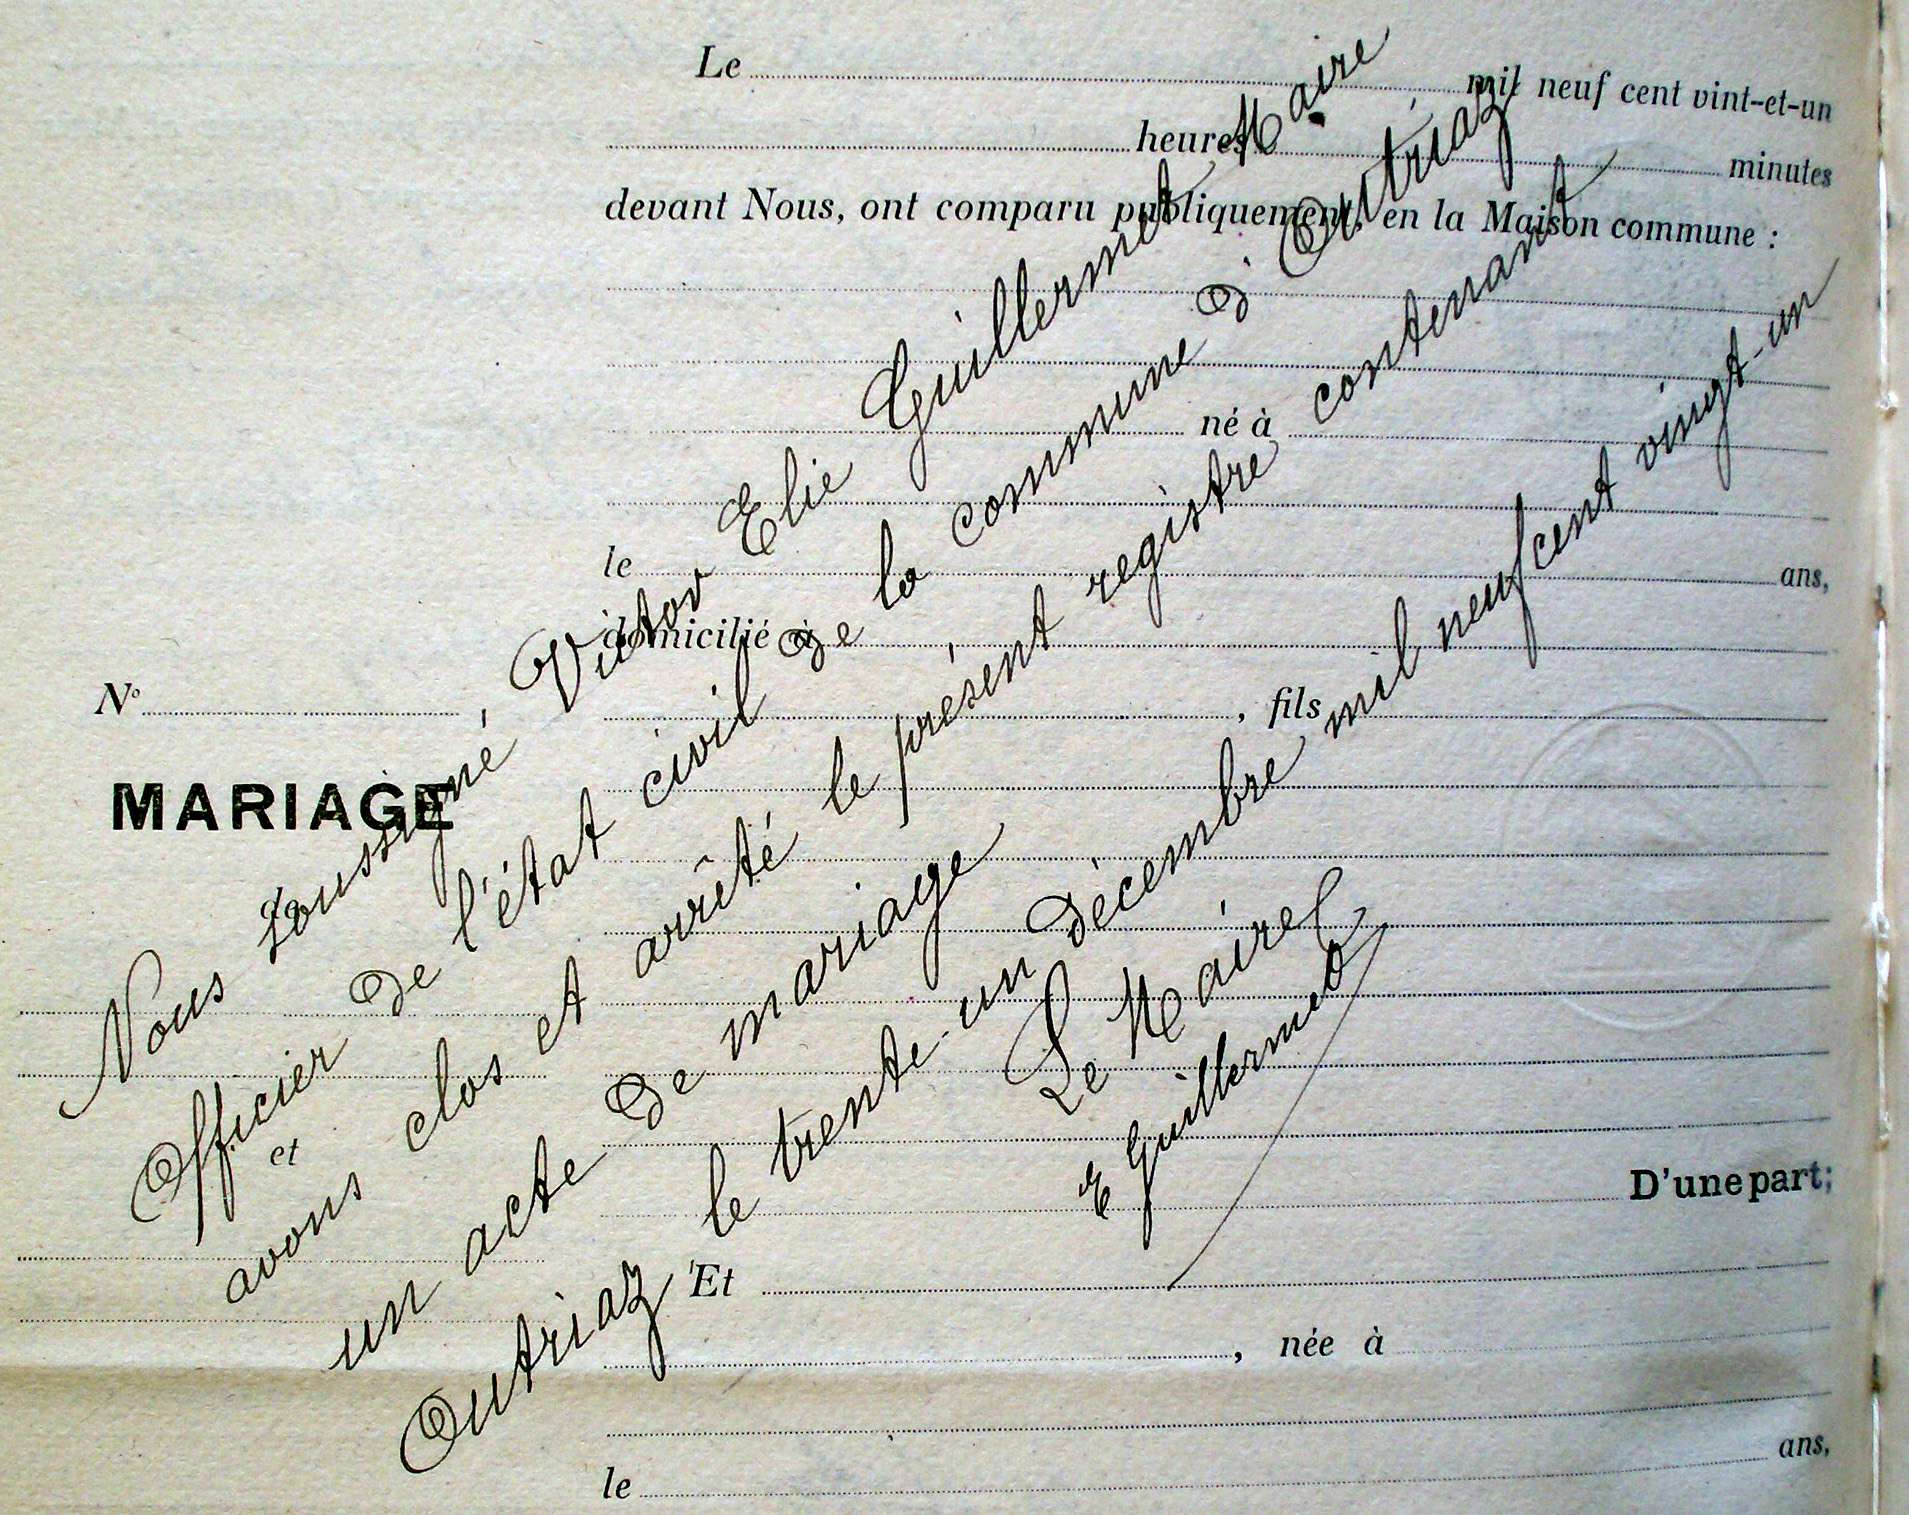 Le mil neuf cent vint-et-un
heures minutes
devant Nous, ont comparu publiquement, en la Maison commune :
né à
le ans,
domicilié à
N° , fils
MARIAGE
D'une part;
Et
, née à
le ans,
Nous soussigné, Victor Elie Guillermet Maire
et
Officier de l'état civil de la commune d'Outriaz
avons clos et arrêté le présent registre contenant
un acte de mariage
Outriaz le trente-un décembre mil neufcent vingt-un
Le Maire
E Guillermet